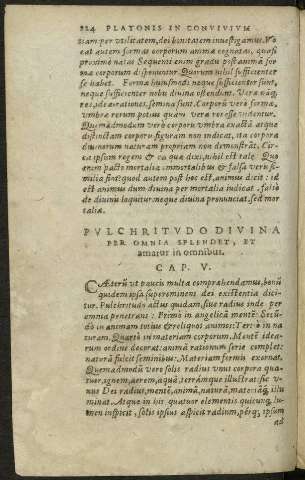 224 PLATONIS IN CONVIVIVM
tiam per vtilitatem, dei bonitatem inuestigamus. Vo
cat autem formas corporum animæ cognatas, quasi
proximo natas Sequenti enim gradu post animā for
mæ corporum disponuntur. Quarum nihil sufficienter
se habet. Formæ huiusmodi neque sufficienter sunt,
neque sufficienter nobis diuina ostendunt. Veræ nāq;
res, ideæ, rationes, semina sunt. Corporū verò formæ,
vmbræ rerum potius quam veræ res esse videntur.
Quemadmodum verò corporis vmbra exactā atque
distinctam corporis figuram non indicat, ita corpora
diuinorum naturam propriam non demonstrāt. Cir
ca ipsum regem & ea quæ dixi, nihil est tale. Quo
enim pacto mortalia immortalibus & falsa veris si-
milia sint? quod autem post hoc est, animus dicit: id
est animus dum diuina per mortalia iudicat, falsò
de diuinis loquitur: neque diuina pronunciat, sed mor
talia.
PVLCHRITVDO DIVINA
PER OMNIA SPLENDET, ET
amatur in omnibus.
CAP. V.
CÆterū vt paucis multa comprehendamus, bonū
quidem ipsa supereminens dei existentia dici-
tur. Pulchritudo actus quidam, siue radius inde per
omnia penetrans: Primò in angelicā mentē: Secū-
dò in animam totius & reliquos animos: Tertiò in na
turam. Quartò in materiam corporum. Mentē idea-
rum ordine decorat: animā rationum serie complet:
naturā fulcit seminibus: Materiam formis exornat.
Quemadmodū vero solis radius vnus corpora quæ-
tuor, ignem, aerem, aquā, terrámque illustrat: sic v-
nus Dei radius, mentē, animā, naturā, materiáq; illu
minat. Atque in his quatuor elementis quicunq; lu-
men inspicit, solis ipsius aspicit radium, pérq; ipsum
ad